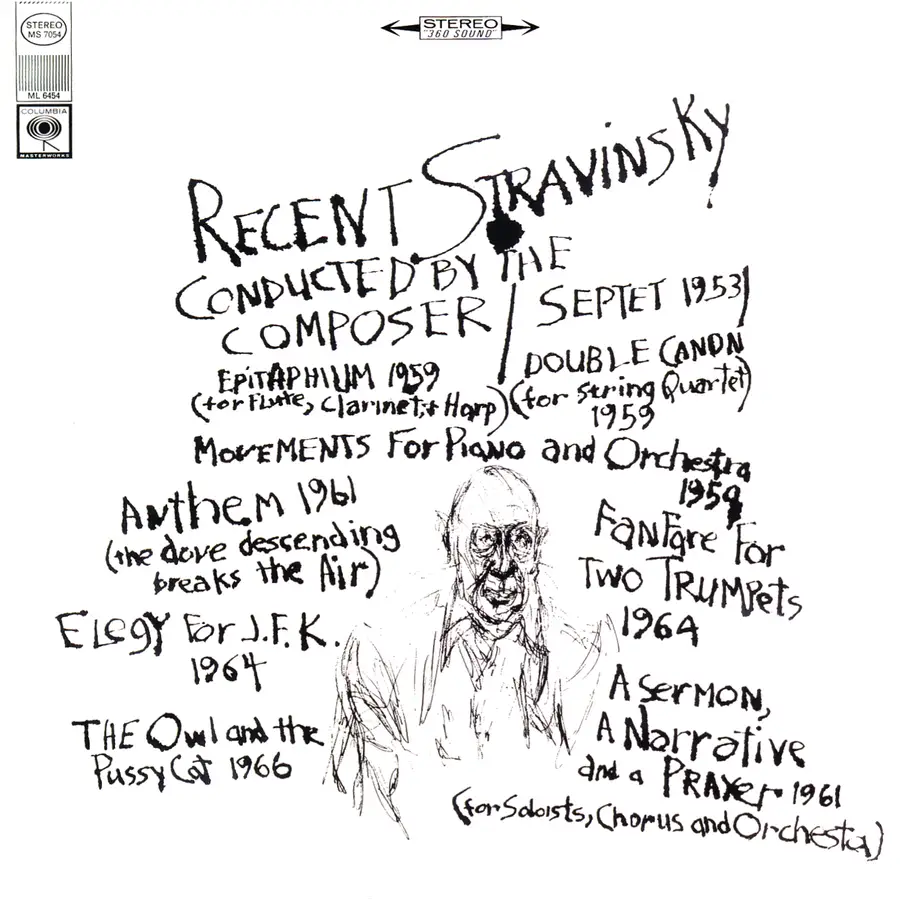 STEREO
MS 7054
ML 6454
COLUMBIA
MASTERWORKS
STEREO
"360 SOUND"
RECENT STRAVINSKY
CONDUCTED BY THE
COMPOSER
SEPTET 1953
EPITAPHIUM 1959
(for Flute, Clarinet, + Harp)
DOUBLE CANON
(for String Quartet)
1959
MOVEMENTS For Piano and Orchestra
1959
Anthem 1961
(the dove descending
breaks the Air)
FanFare For
Two TRUMPets
1964
Elegy for J.F.K.
1964
A Sermon,
A Narrative
and a PRAyer 1961
(for Soloists, Chorus and Orchestra)
THE Owl and the
PussyCat 1966